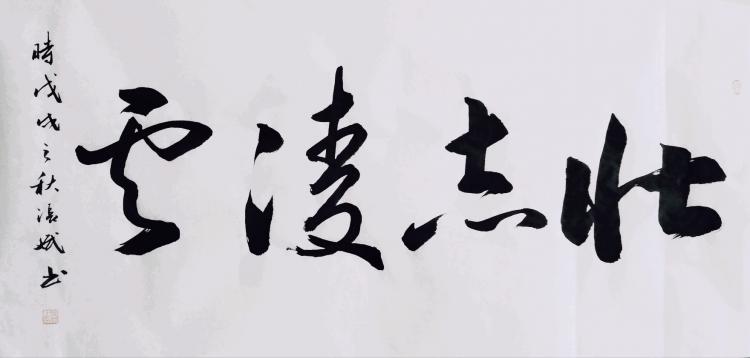 壮志凌雲
時戊戌之秋張斌书